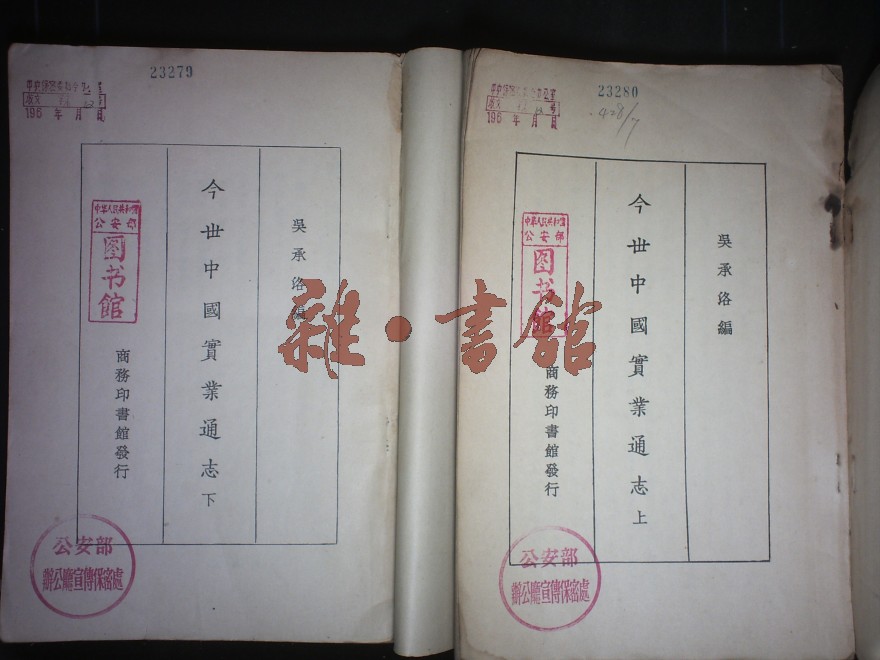 23279
196 年 月 日
吳承洛編
今世中國實業通志下
商務印書館發行
中华人民共和国
公安部
图书馆
公安部
辦公廳宣傳保密處
23280
428/7
196 年 月 日
吳承洛編
今世中國實業通志上
商務印書館發行
中华人民共和国
公安部
图书馆
公安部
辦公廳宣傳保密處
雜·書館